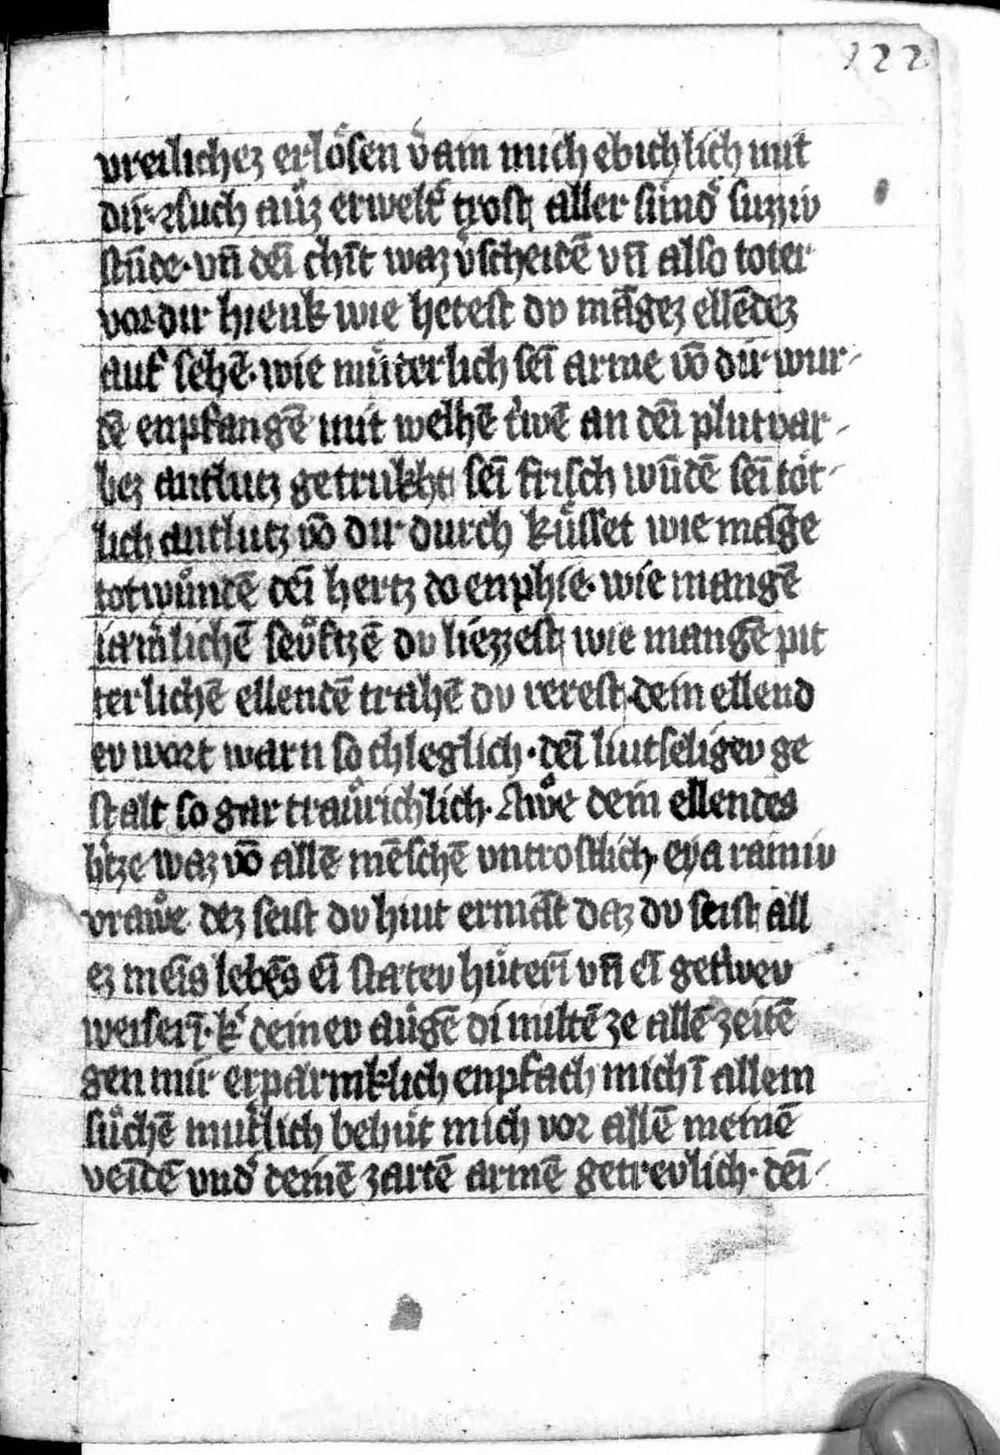 122
vreilichez erlősen v̾ain mich ebichlich mit
dir · such aůz erwelt̾ trost aller sünd̾ suzziv
stūde · vn̄ dei̅ chīt waz v̾scheidē vn̄ also toter
vor dir hienk wie hetest dv māgez ellēdez
auf sehē · wie můterlich sei̅ arme vō dir wur-
dē enpfangē mit welhē t̾wē an dei̅ plutvar-
bez antlutz getrukht sei̅ frisch wūdē sei̅ tot-
lich antlutz vō dir durch kůsset wie māge
totwůndē dei̅ hertz do enphie · wie mangē
iam̾lichē sevftzē dv liezzest wie mangē pit
terlichē ellendē trahē dv rerest dein ellend
ev wort warn so chleglich · dei̅ liutseligev ge
stalt so gar traůrichlich · Awe dein ellendes
h̾tze waz vō allē mēschē vntrostlich · eya rainiv
vrawe dez seist dv hiut ermāt daz dv seist all
ez meīs lebēs ei̅ statev hůteri̅ vn̄ ei̅ get̾wev
weiseri̅ · k̾ deinev aůgē di miltē ze allē zeitē
gen mir erparmklich enpfach mich ī allem
sůchē mut̾lich behůt mich vor allē meinē
veīdē vnd̾ deinē zartē armē getrevlich · dei̅